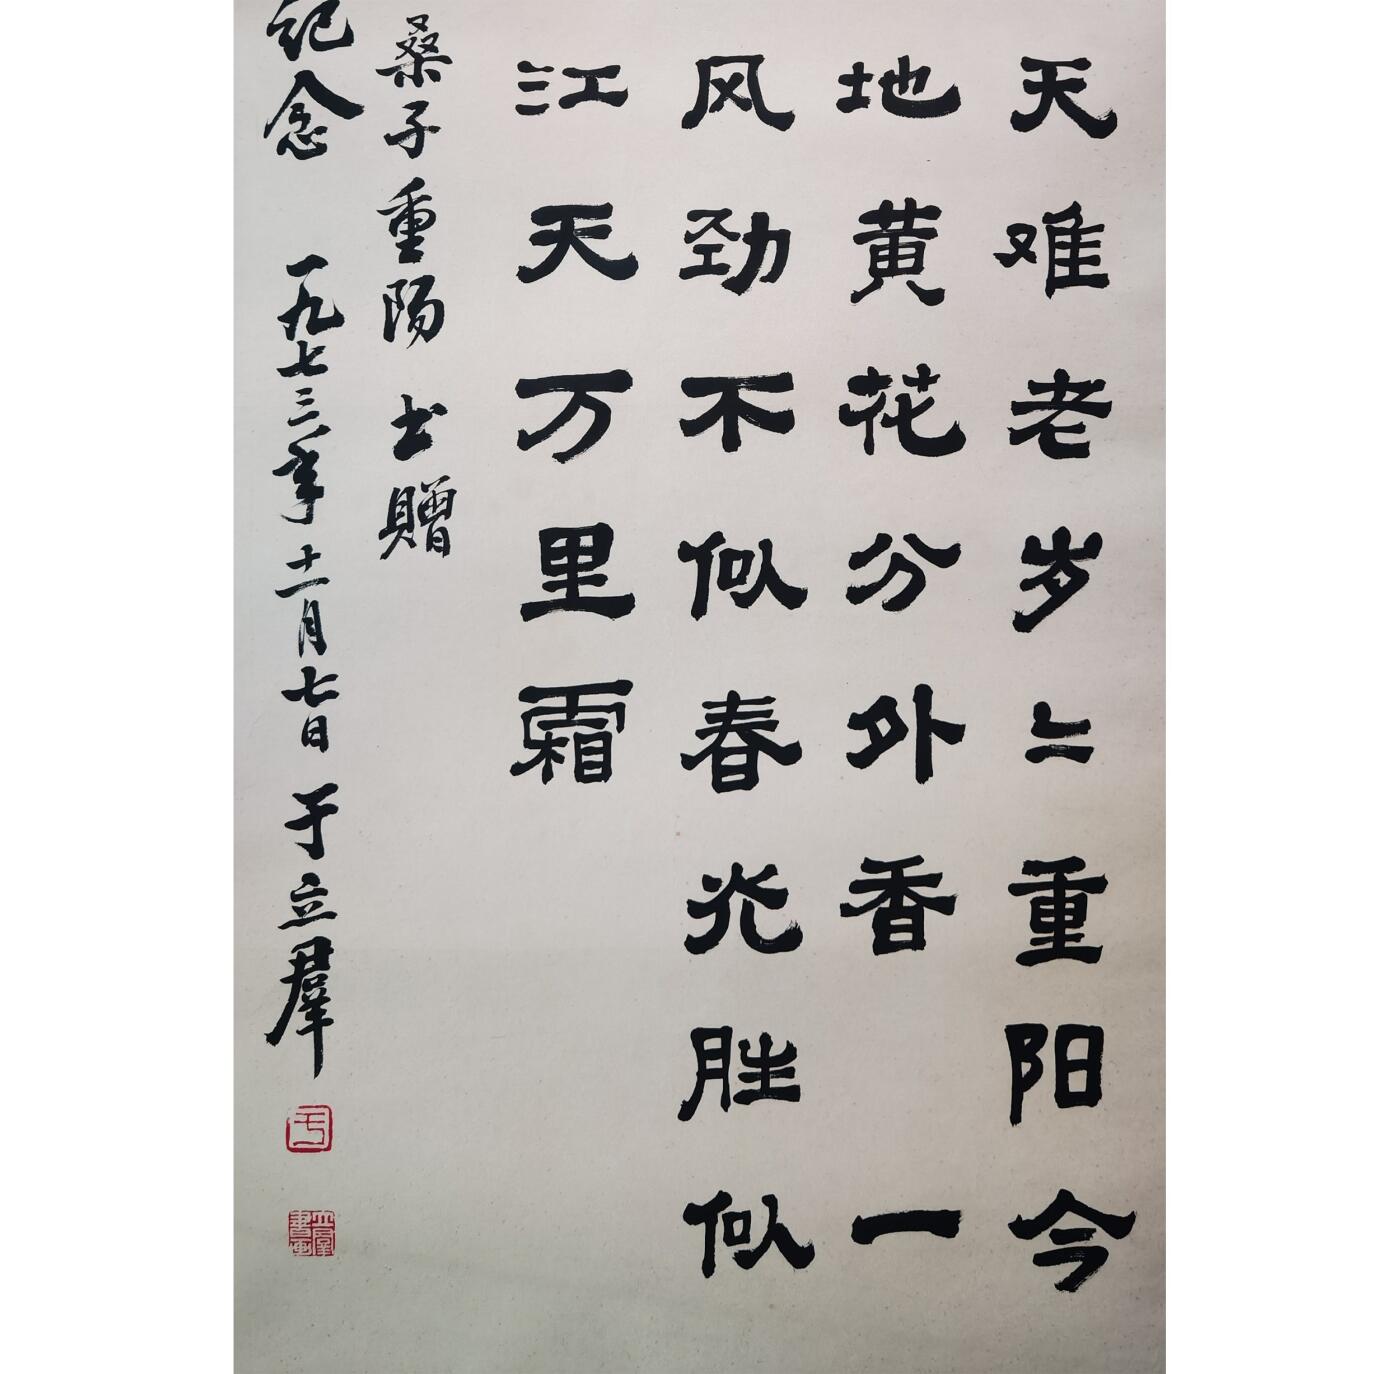 天难老岁々重阳今
地黄花分外香一
风劲不似春光胜似
江天万里霜
桑子重陽 书贈
纪念 一九七三年十一月七日 于立羣